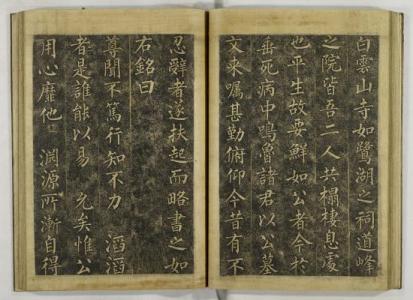 白雲山寺如鷺湖之祠道峰
之院皆吾二人共榻棲息處
也平生故要鮮如公者今於
垂死病中鳴魯諸君以公墓
文来嘱甚勤俯仰今昔有不
忍辭者遂扶起而略書之如
右銘曰
尊聞不篤行知不力　滔滔
者是誰能以易　允矣惟公
用心靡他　淵源所漸自得